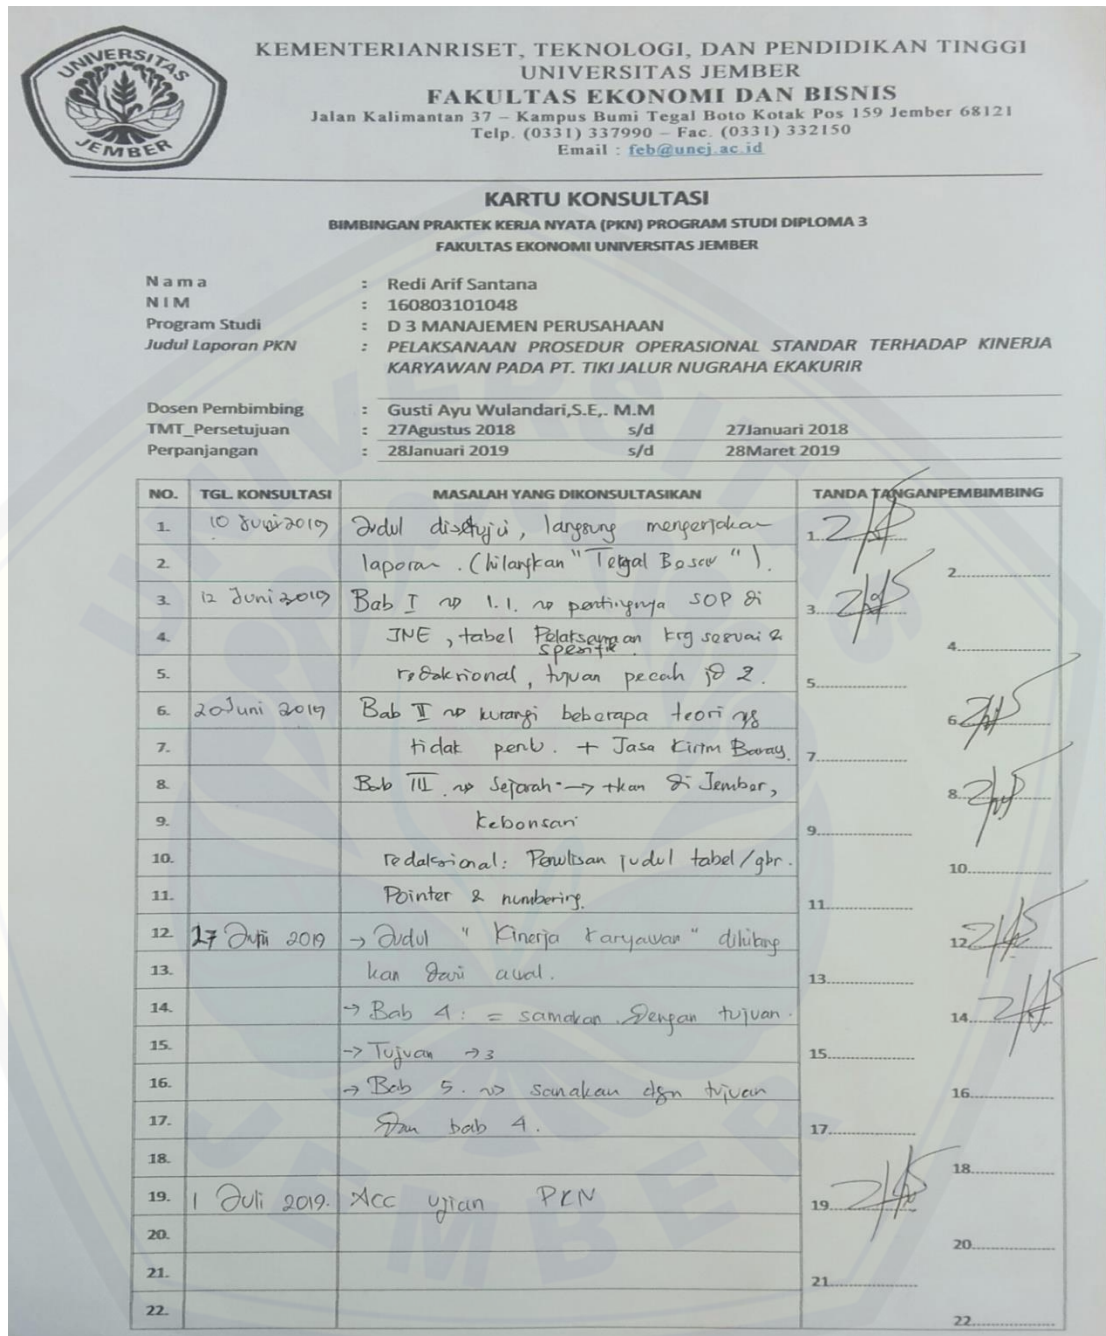 UNIVERSITAS
JEMBER
KEMENTERIANRISET, TEKNOLOGI, DAN PENDIDIKAN TINGGI
UNIVERSITAS JEMBER
FAKULTAS EKONOMI DAN BISNIS
Jalan Kalimantan 37 – Kampus Bumi Tegal Boto Kotak Pos 159 Jember 68121
Telp. (0331) 337990 – Fac. (0331) 332150
Email : feb@unej.ac.id
KARTU KONSULTASI
BIMBINGAN PRAKTEK KERJA NYATA (PKN) PROGRAM STUDI DIPLOMA 3
FAKULTAS EKONOMI UNIVERSITAS JEMBER
N a m a : Redi Arif Santana
N I M : 160803101048
Program Studi : D 3 MANAJEMEN PERUSAHAAN
Judul Laporan PKN : PELAKSANAAN PROSEDUR OPERASIONAL STANDAR TERHADAP KINERJA
KARYAWAN PADA PT. TIKI JALUR NUGRAHA EKAKURIR
Dosen Pembimbing : Gusti Ayu Wulandari,S.E,. M.M
TMT_Persetujuan : 27Agustus 2018 s/d 27Januari 2018
Perpanjangan : 28Januari 2019 s/d 28Maret 2019
NO. TGL. KONSULTASI MASALAH YANG DIKONSULTASIKAN TANDA TANGANPEMBIMBING
1. 10 Juni 2019 Judul disetujui, langsung mengerjakan 1.
2. laporan. (hilangkan " "). 2.
3. 12 Juni 2019 Bab I 1.1. pentingnya SOP di 3.
4. JNE, tabel Pelaksanaan krg sesuai & 4.
spesifik.
5. redaksional, tujuan pecah jd 2. 5.
6. 20 Juni 2019 Bab II kurangi beberapa teori yg 6.
7. tidak perlu. + Jasa Kirim Barang. 7.
8. Bab III Sejarah → +kan di Jember, 8.
9. Kebonsari 9.
10. redaksional: Penulisan judul tabel/gbr. 10.
11. Pointer & numbering. 11.
12. 27 Juni 2019 → Judul " Kinerja Karyawan " dihilang 12.
13. kan dari awal. 13.
14. → Bab 4: = samakan dengan tujuan. 14.
15. → Tujuan → 3 15.
16. → Bab 5. samakan dgn tujuan 16.
17. dan bab 4. 17.
18. 18.
19. 1 Juli 2019. Acc ujian PKN 19.
20. 20.
21. 21.
22. 22.